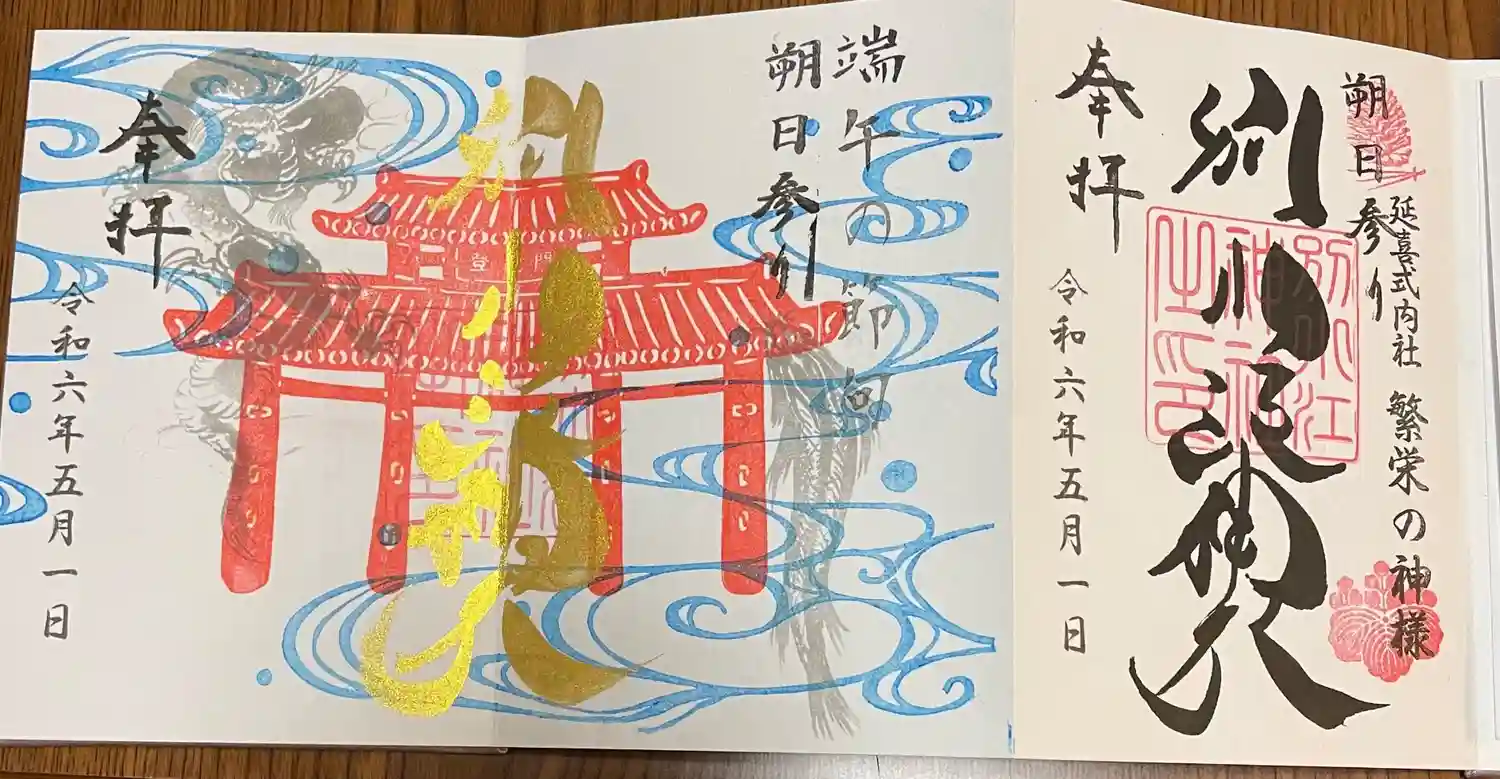 延喜式内社 繁栄の神様
朔日参り
別小江神社
別小江神社之印
奉拝
令和六年五月一日
端午の節句
朔日参り
別小江神社
奉拝
令和六年五月一日